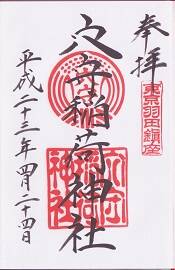 奉拝
東京羽田鎮座
穴守稲荷神社
平成二十三年四月二十四日